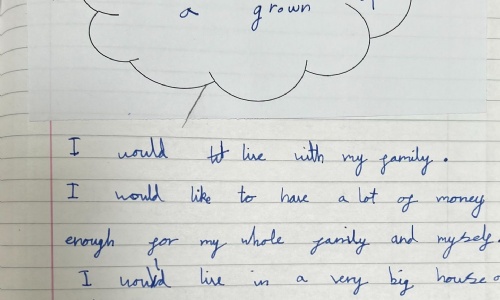 a grown
I would live with my family.
I would like to have a lot of money
enough for my whole family and myself.
I would live in a very big house